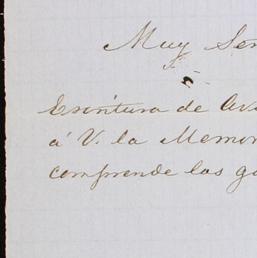 Muy Señ
Escritura de
á V. la Memor
comprende los ga